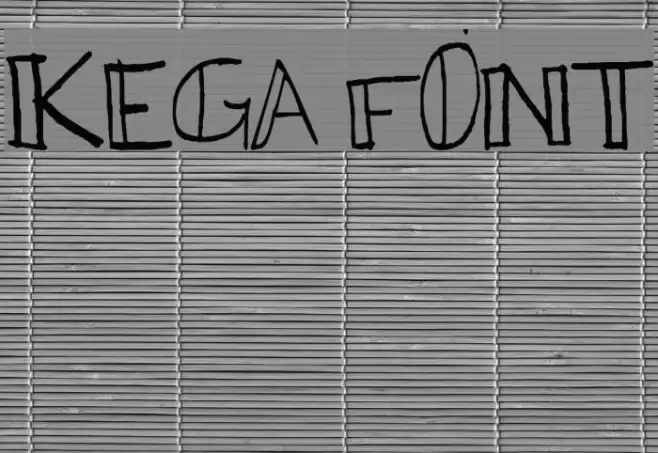 KEGA FONT